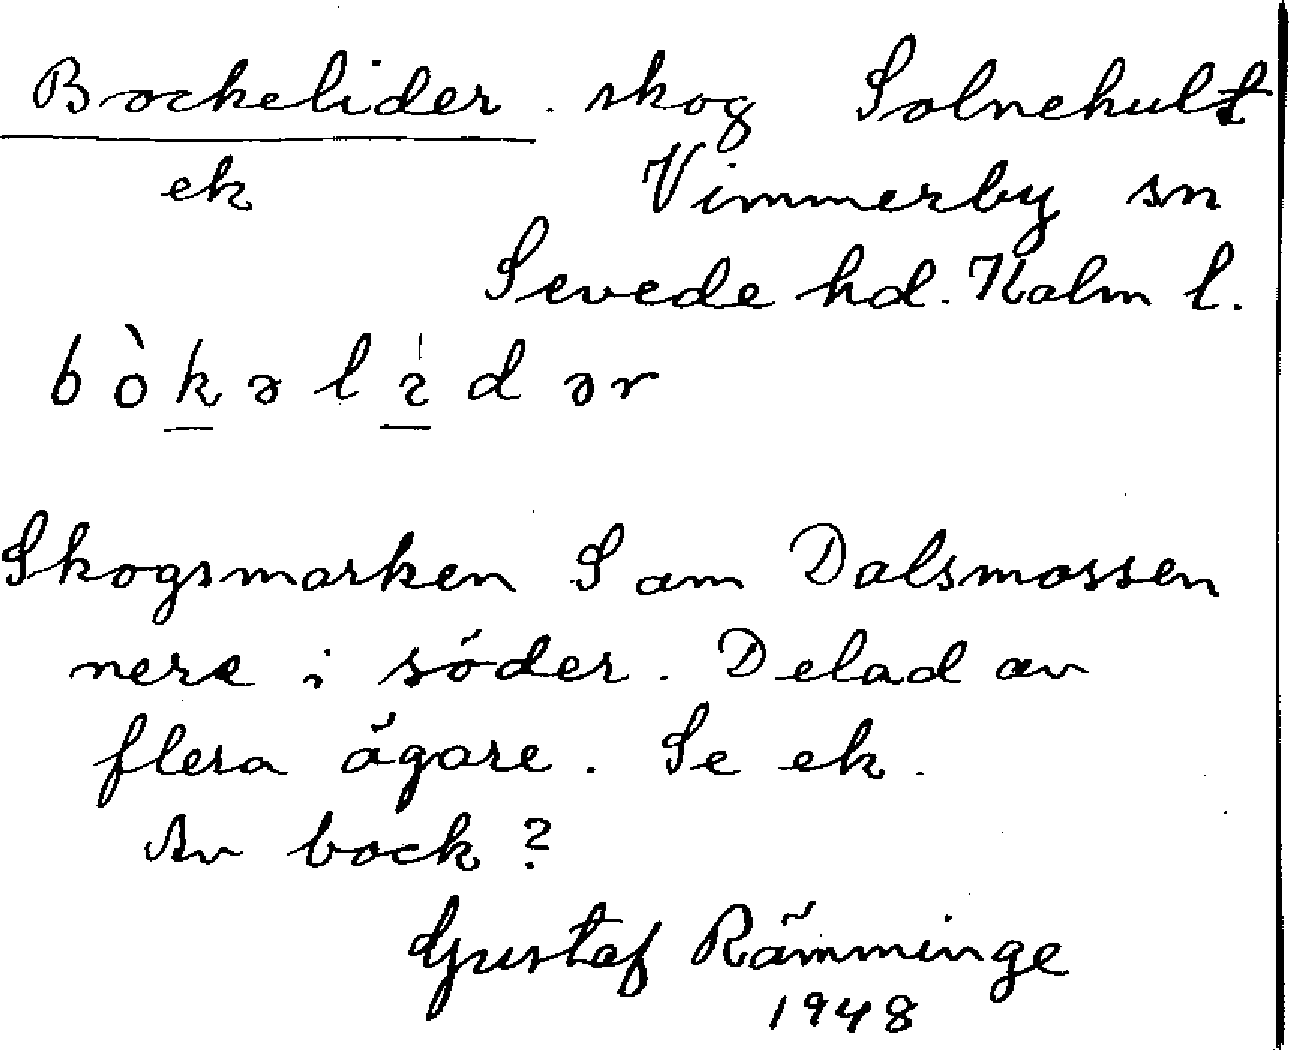 Bockelider. skog Solnehult
ek Vimmerby sn
Sevede hd. Kalm l.
bòkəlìdər
Skogsmarken S om Dalsmossen
nere i söder. Delad av
flera ägare. Se ek.
Av bock?
Gustaf Rämminge
1948